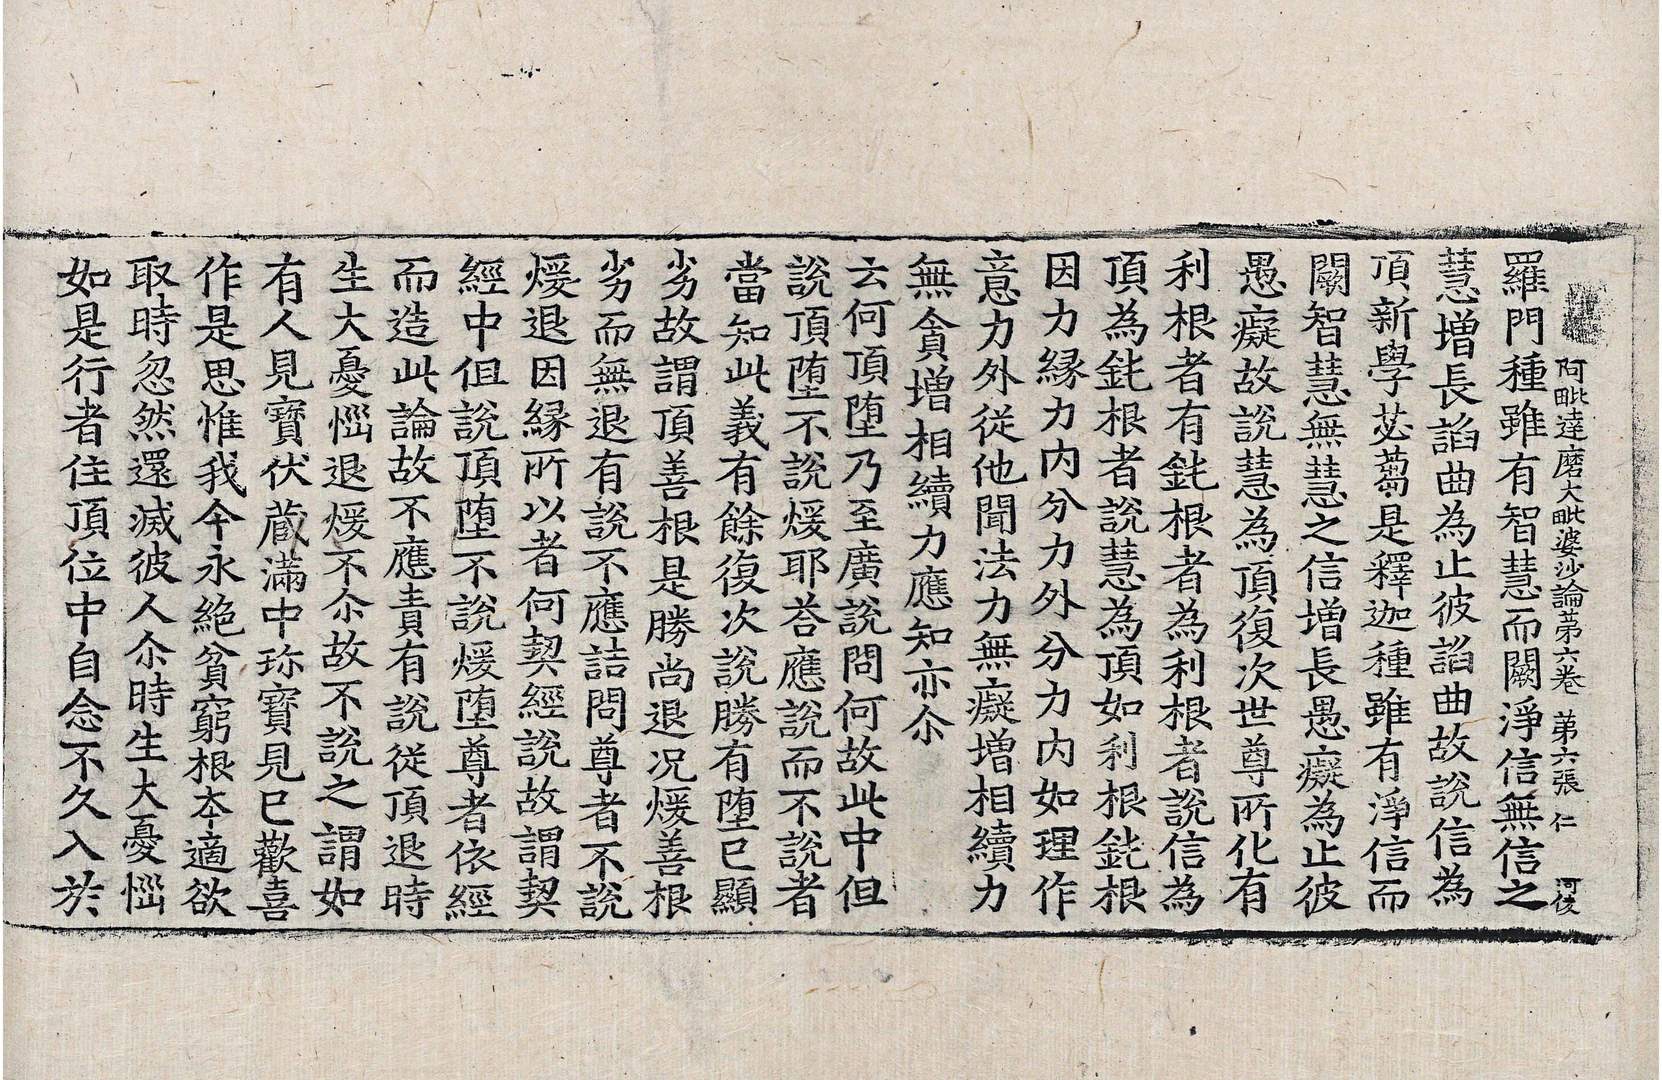 阿毗達磨大毗婆沙論苐六卷 苐六張 仁
羅門種雖有智慧而闕淨信無信之
慧增長謟曲為止彼謟曲故說信為
頂新學苾蒭是釋迦種雖有淨信而
闕智慧無慧之信增長愚癡為止彼
愚癡故說慧為頂復次世尊所化有
利根者有鈍根者為利根者說信為
頂為鈍根者說慧為頂如利根鈍根
因力緣力內分力外分力內如理作
意力外從他聞法力無癡增相續力
無貪增相續力應知亦尒
云何頂堕乃至廣說問何故此中但
說頂堕不說煖耶荅應說而不說者
當知此義有餘復次說勝有堕已顯
劣故謂頂善根是勝尚退况煖善根
劣而無退有說不應詰問尊者不說
煖退因緣所以者何契經說故謂契
經中但說頂堕不說煖堕尊者依經
而造此論故不應責有說從頂退時
生大憂惱退煖不尒故不說之謂如
有人見寶伏藏滿中珎寶見已歡喜
作是思惟我今永絕貧窮根本適欲
取時忽然還滅彼人尒時生大憂惱
如是行者住頂位中自念不久入於